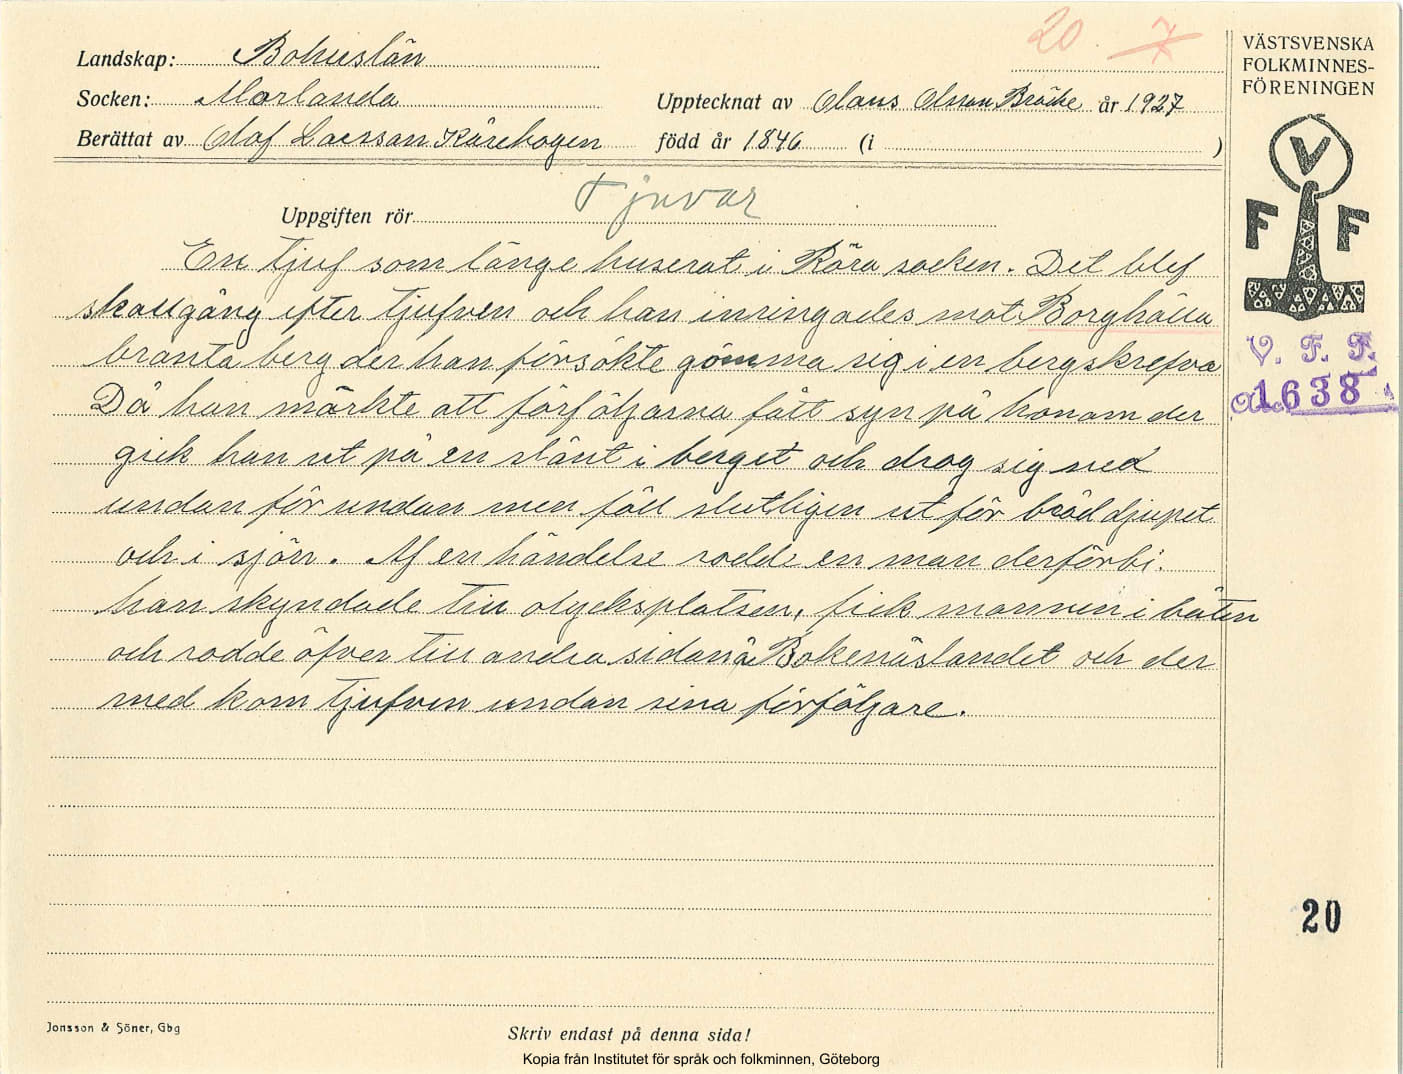 20 7
Landskap: Bohuslän
Socken: Morlanda
Upptecknat av Olaus Olsson Bräcke år 1927
Berättat av Olof Larsson Kårehogen född år 1846 (i )
Uppgiften rör Tjuvar
En tjuf som länge huserat i Röra socken. Det blef
skallgång efter tjufven och han inringades mot Borghälla
branta berg der han försökte gömma sig i en bergskrefva
Då han märkte att förföljarna fått syn på honom der
gick han ut på en slänt i berget och drog sig ned
undan för undan men föll slutligen ut för bråddjupet
och i sjön. Af en händelse rodde en man derförbi.
han skyndade till olycksplatsen, fick mannen i båten
och rodde öfver till andra sidan å Bokenäslandet och der
med kom tjufven undan sina förföljare.
VÄSTSVENSKA
FOLKMINNES-
FÖRENINGEN
V
F F
V. F. F.
1638
20
Jonsson & Söner, Gbg
Skriv endast på denna sida!
Kopia från Institutet för språk och folkminnen, Göteborg